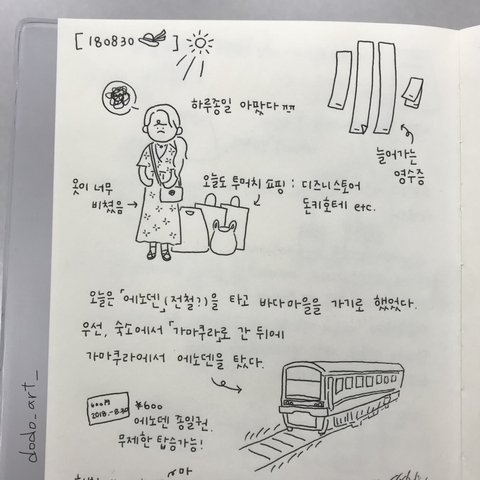 [ 180830 ]
하루종일 아팠다 ㅠㅠ
늘어가는
영수증
옷이 너무
비쳤음 →
오늘도 투머치 쇼핑 : 디즈니스토어
돈키호테 etc.
오늘은 「에노덴」(전철?)을 타고 바다마을을 가기로 했었다.
우선, 숙소에서 「가마쿠라」로 간 뒤에
가마쿠라에서 에노덴을 탔다.
600円
2018.-8.30
¥600
에노덴 종일권.
무제한 탑승가능!
dodo_art_